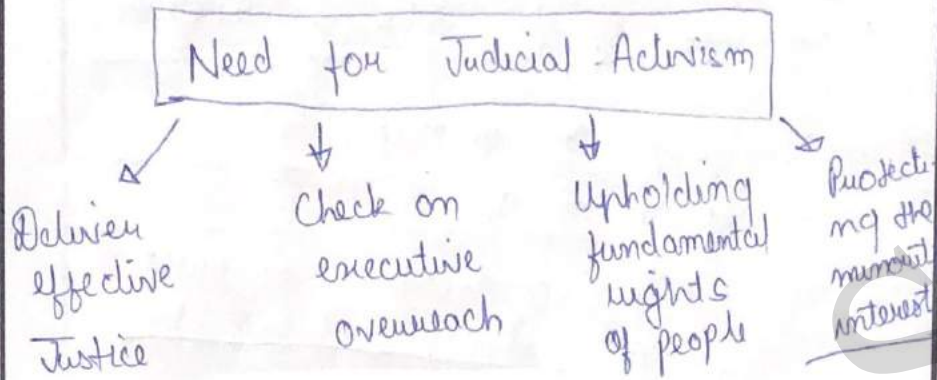 Need for Judicial Activism
Deliver
effective
Justice
Check on
executive
overreach
Upholding
fundamental
rights
of people
Protecti-
ng the
minorit
interest